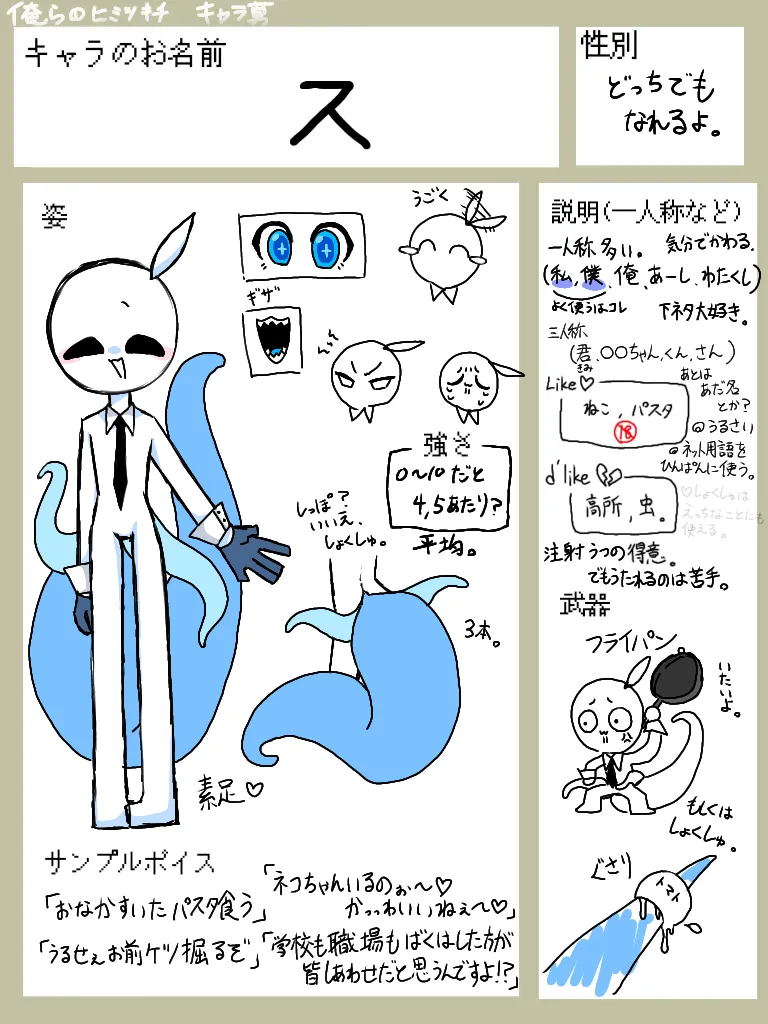 俺らのヒミツキチ キャラ募
キャラのお名前
ス
性別
どっちでも
なれるよ。
姿
うごく
ギザ
強さ
0~10だと
4,5あたり?
平均。
しっぽ?
いいえ、
しょくしゅ。
3本。
素足♡
サンプルボイス
「おなかすいたパスタ食う」
「ネコちゃんいるのぉ~♡
かっっわいいねぇ~♡」
「うるせぇお前ケツ掘るぞ」
「学校も職場もばくはした方が
皆しあわせだと思うんですよ!?」
説明(一人称など)
一人称 多い。 気分でかわる。
(私,僕、俺、あーし、わたくし)
よく使うはコレ
下ネタ大好き。
三人称
(君、〇〇ちゃん,くん,さん)
きみ
あとは
あだ名
とか?
Like♡
ねこ, パスタ
18
うるさい
ネット用語を
ひんぱんに使う。
d'like
高所,虫。
♡しょくしゅは
えっちなことにも
使える。
注射うつの得意。
でもうたれるのは苦手。
武器
フライパン
いたいよ。
もしくは
しょくしゅ。
ぐさり
トマト